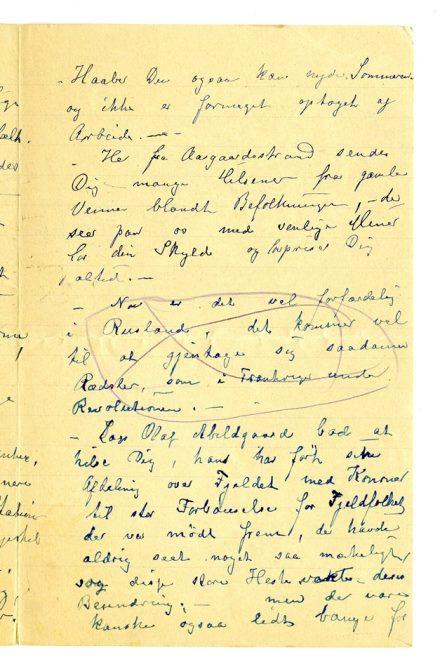 - Haaber Du ogsaa kan nyde Sommeren
og ikke er formeget optaget af
Arbeide. —
- Her fra Aasgaardsstrand sendes
Dig mange Hilsener fra gamle
Venner blandt Befolkningen, - de
seer paa os med venlige Miner
for din Skyld og lovpriser Dig
altid. —
- Nu er det vel forfærdelig
i Rusland, det kommer vel
til at gjentage sig saadanne
Rædsler, som i Frankrige under
Revolutionen. — -
- Olaf Abildgaard bad at
hilse Dig, hans harført sin
Afdeling over Fjeldet med Kanoner
til stor Forbauselse for Fjeldfolket
der var mødt frem, de havde
aldrig seet noget saa mærkeligt
og disse store Heste vakte deres
Beundring; - men der vare
kanske ogsaa lidt bange for